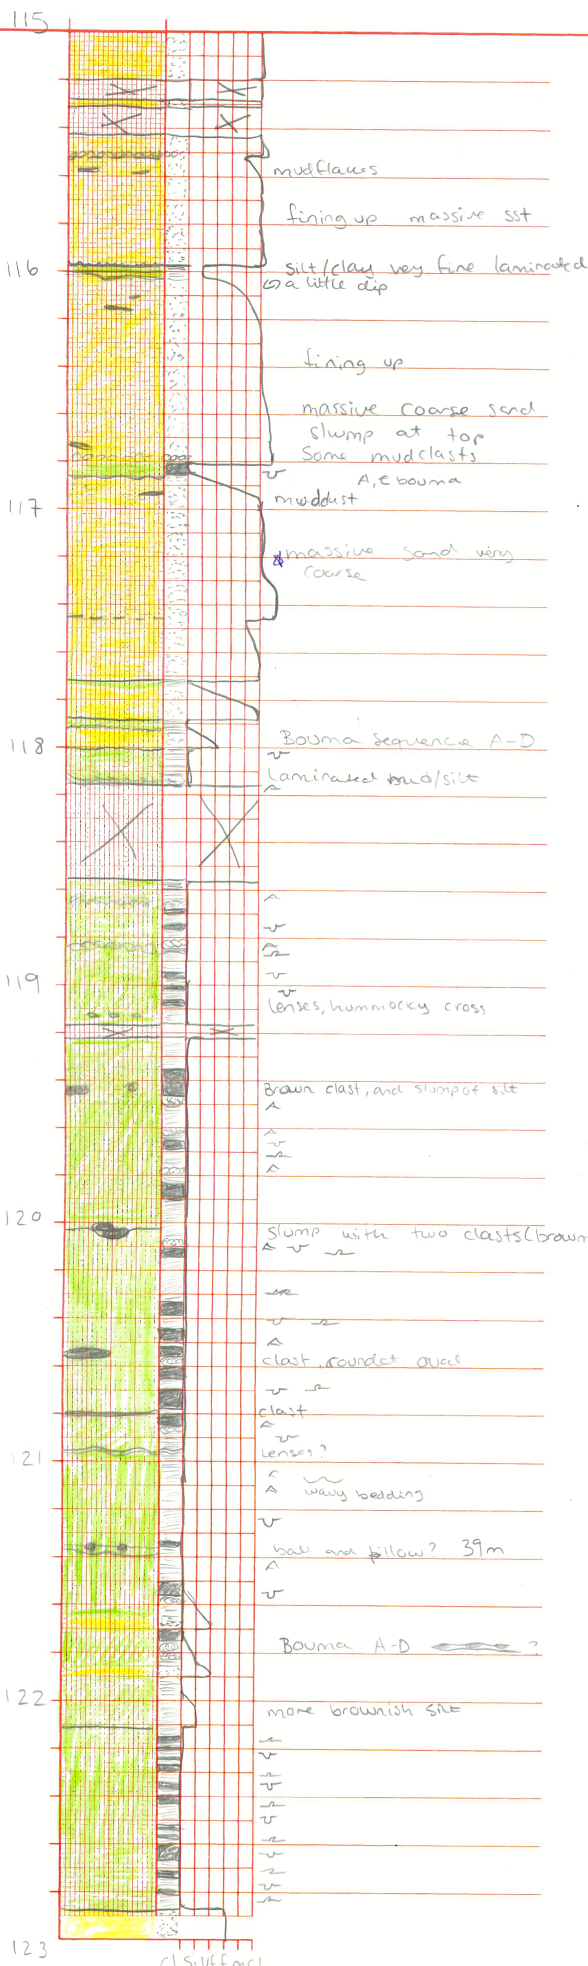 115
mudflakes
fining up massive sst
116
silt/clay very fine laminated
a little dip
fining up
massive coarse sand
slump at top
Some mudclasts
A,E bouma
117
massive sand very
coarse
118
Bouma Sequence A-D
laminated mud/silt
119
lenses, hummocky cross
Brown clast, and slump of silt
120
slump with two clasts (brown
clast, roundet oval
clast
121
lenses?
wavy bedding
ball and pillow? 39m
Bouma A-D ?
122
more brownish silt
123